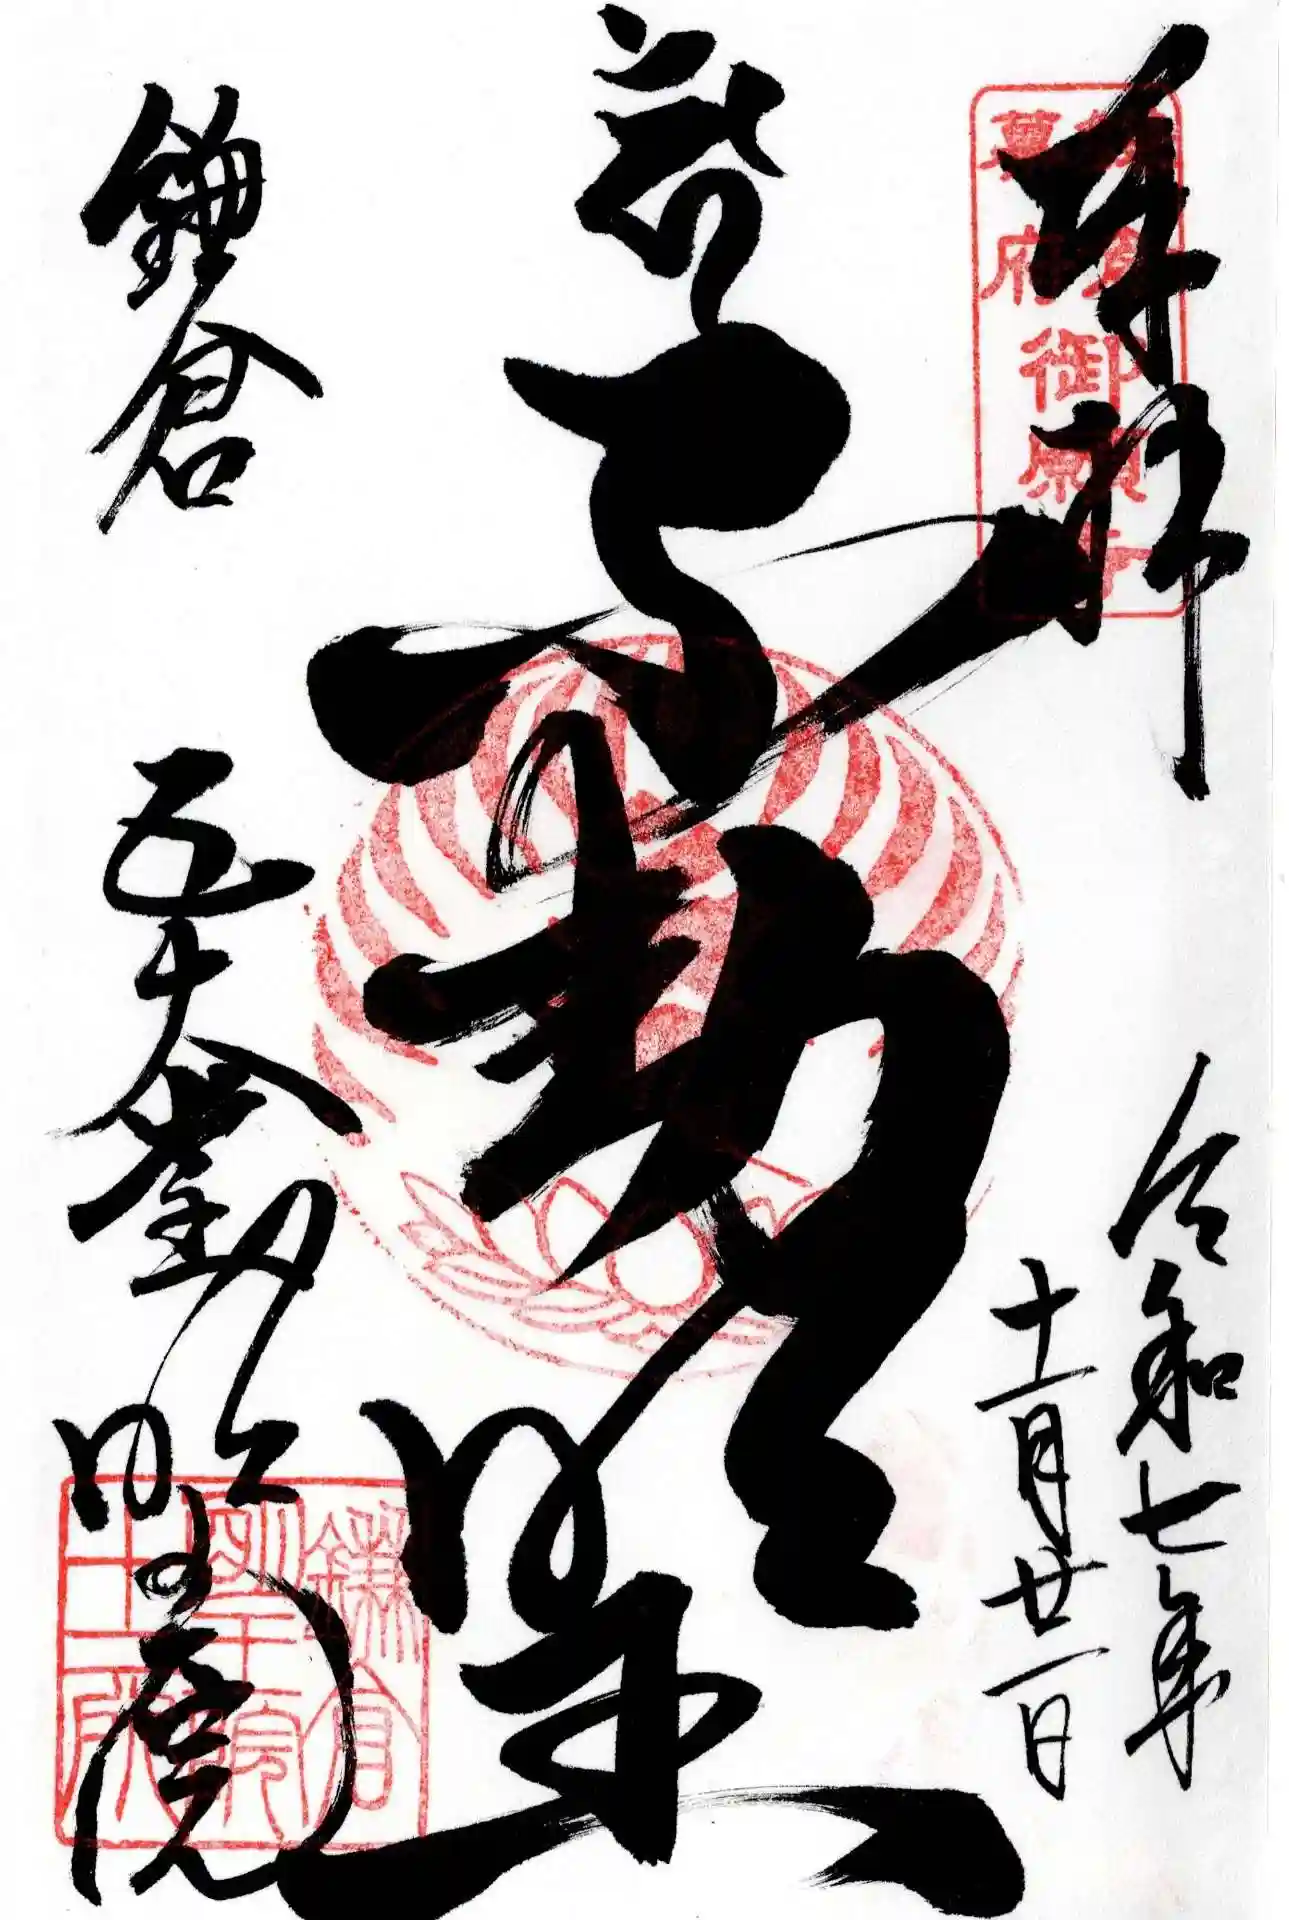 奉拝
鎌倉
幕府
御願寺
令和七年
十一月廿一日
不動明王
鎌倉
五大堂
明王院
鎌倉
明王院
十二所